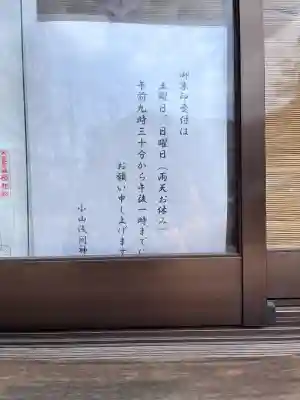 御朱印受付は
土曜日、日曜日(雨天お休み)
午前九時三十分から午後一時までに
お願い申し上げます
小山浅間神